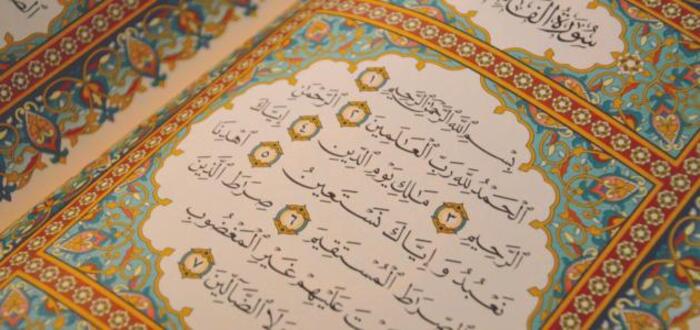 سُورَةُ الْفَا
بِسْمِ اللَّهِ الرَّحْمَٰنِ الرَّحِيمِ ١
الْحَمْدُ لِلَّهِ رَبِّ الْعَالَمِينَ ٢ الرَّحْمَٰنِ
الرَّحِيمِ ٣ مَالِكِ يَوْمِ الدِّينِ ٤ إِيَّاكَ
نَعْبُدُ وَإِيَّاكَ نَسْتَعِينُ ٥ اهْدِنَا
الصِّرَاطَ الْمُسْتَقِيمَ ٦ صِرَاطَ الَّذِينَ
عَلَيْهِمْ غَيْرِ الْمَغْضُوبِ
الضَّالِّينَ ٧